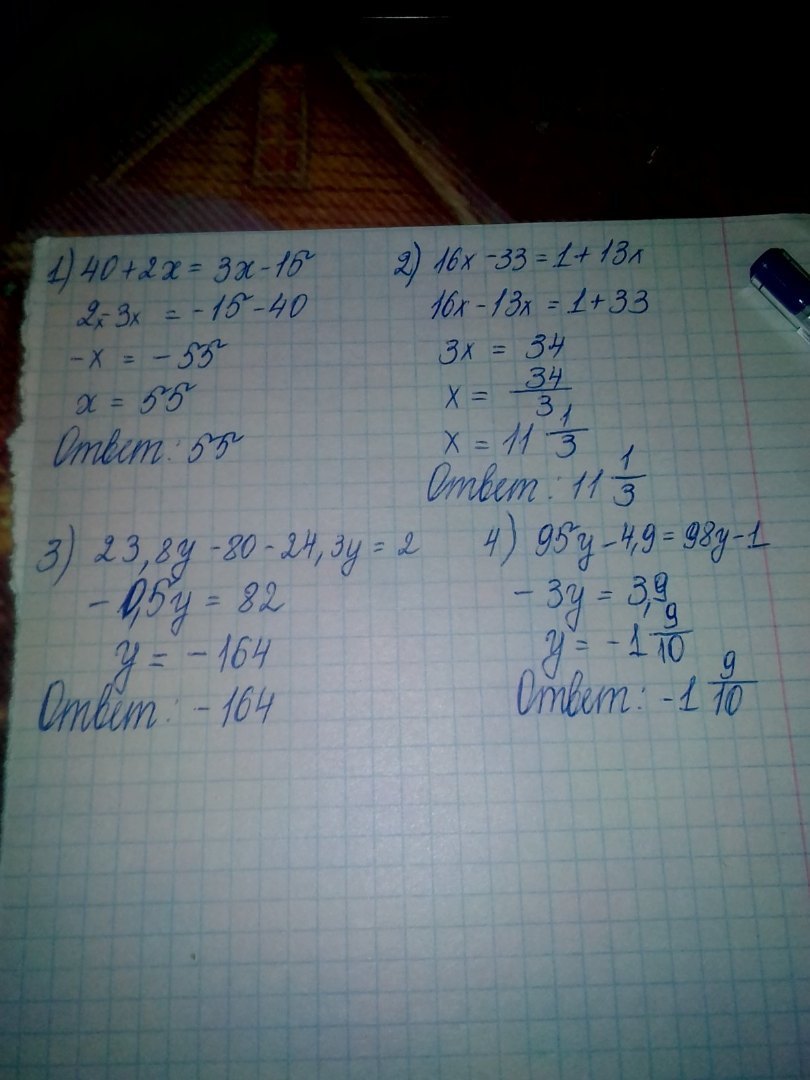 1) 40 + 2x = 3x - 15
2x - 3x = -15 - 40
-x = -55
x = 55
Ответ: 55
2) 16x - 33 = 1 + 13x
16x - 13x = 1 + 33
3x = 34
x = 34/3
x = 11 1/3
Ответ: 11 1/3
3) 23,8y - 80 - 24,3y = 2
-0,5y = 82
y = -164
Ответ: -164
4) 95y - 4,9 = 98y - 1
-3y = 3,9
y = -1 9/10
Ответ: -1 9/10